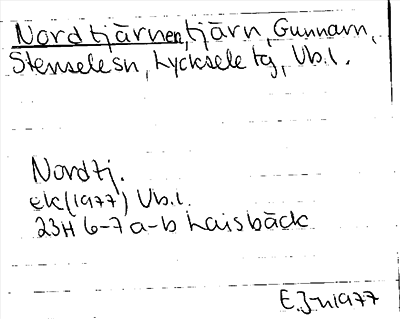 Nordtjärnen, tjärn, Gunnarn,
Stensele sn, Lycksele tg, Vb. l.
Nordtj.
ek (1977) Vb. l.
23H 6-7 a-b Laisbäck
E.J-n 1977